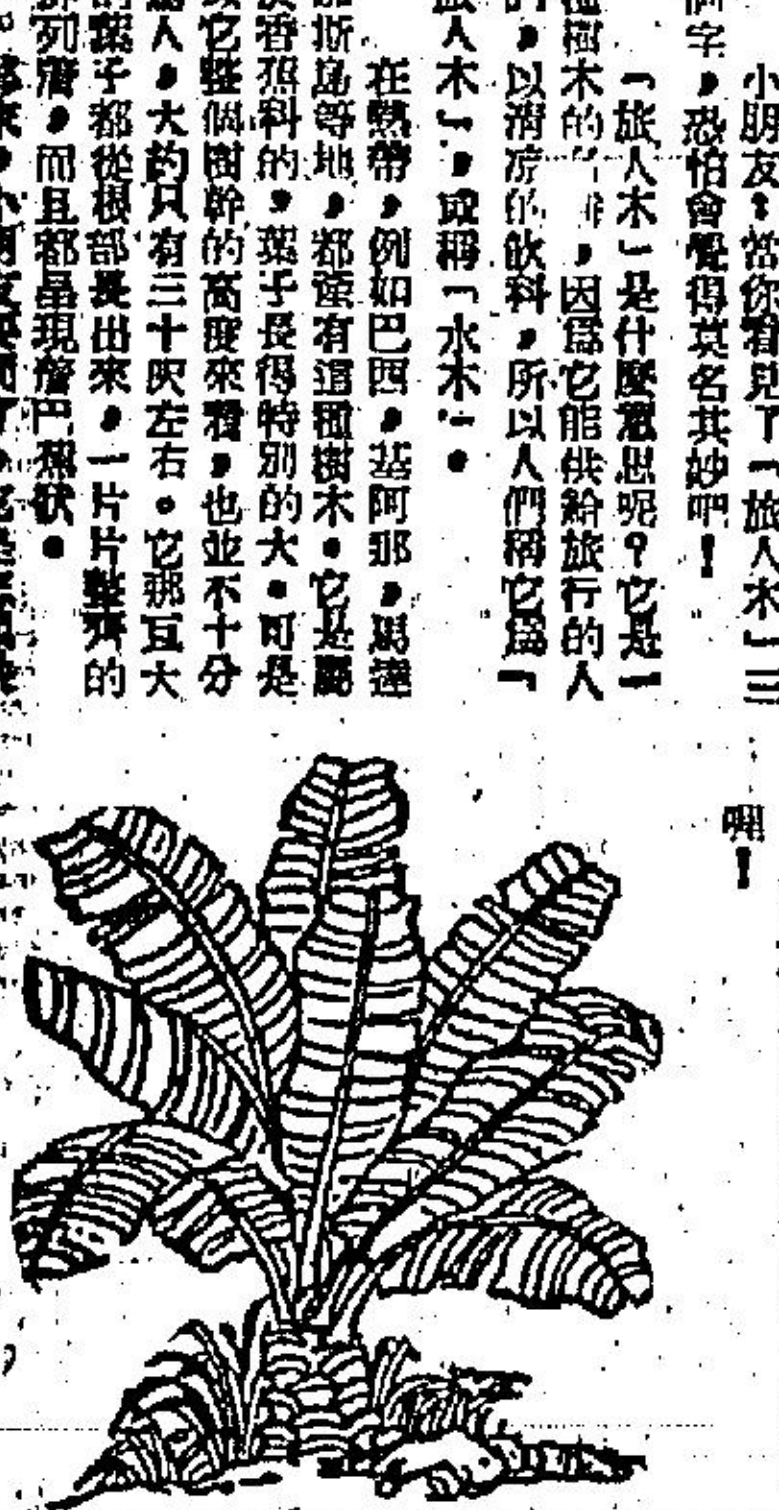 小朋友:當你看見了「旅人木」三
個字,恐怕會覺得莫名其妙吧!
「旅人木」是什麼意思呢?它是一
種樹木的 ,因爲它能供給旅行的人
們,以清凉的飲料,所以人們稱它爲「
旅人木」,或稱「水木」。
在熱帶,例如巴西,基阿那,馬達
加斯島等地,都產有這種樹木。它是屬
於香蕉科的,葉子長得特別的大。可是
以它整個樹幹的高度來看,也並不十分
驚人,大約只有三十呎左右。它那互大
的葉子都從根部長出來,一片片整齊的
排列着,而且都呈現着巴蕉狀。
哩!